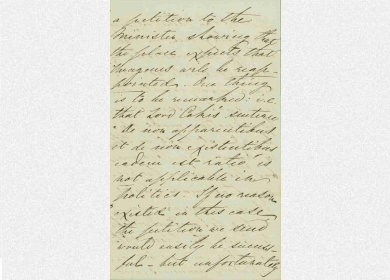 a petition to the
Minister, showing that
the place expects that
will be reap-
pointed. One thing
is to be remarked: i.e.
that Lord Coke's sentence
"de non apparentibus
et de non existentibus
eadem est ratio" is
not applicable in
politics. If no reason
existed in this case,
the petition we send
would easily be success-
ful - but unfortunately